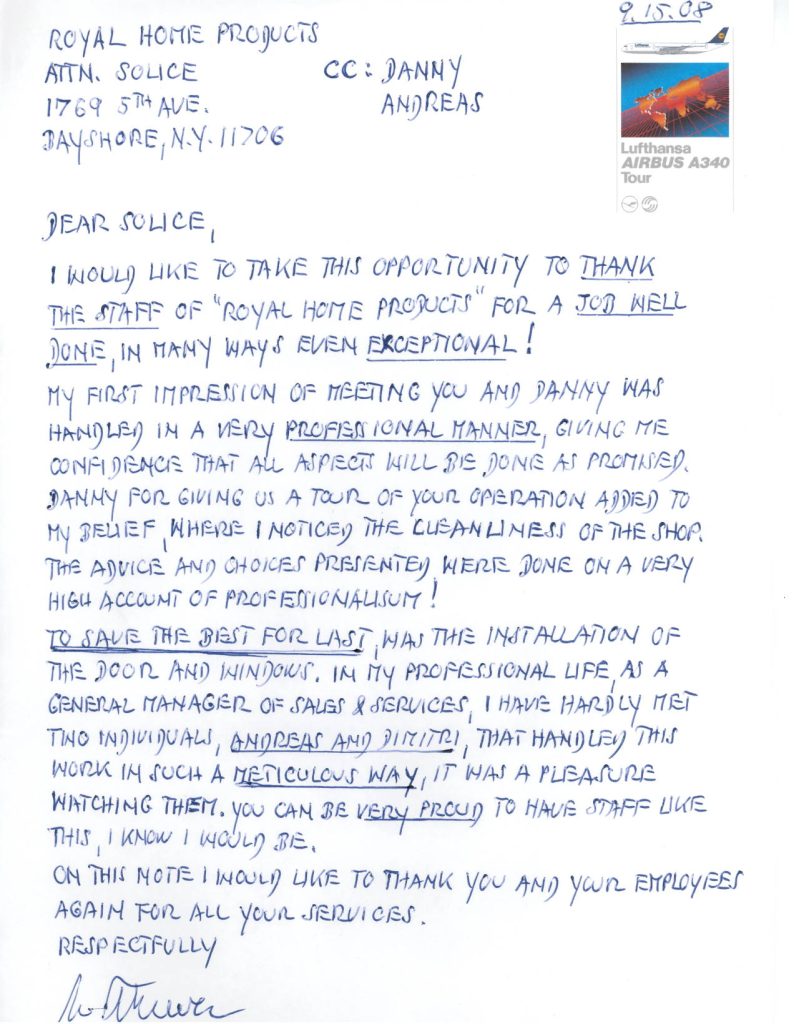 9.15.08
ROYAL HOME PRODUCTS
ATTN. SOLICE CC: DANNY
1769 5TH AVE. ANDREAS
BAYSHORE, N.Y. 11706
Lufthansa
Lufthansa
AIRBUS A340
Tour
DEAR SOLICE,
I WOULD LIKE TO TAKE THIS OPPORTUNITY TO THANK
THE STAFF OF "ROYAL HOME PRODUCTS" FOR A JOB WELL
DONE, IN MANY WAYS EVEN EXCEPTIONAL!
MY FIRST IMPRESSION OF MEETING YOU AND DANNY WAS
HANDLED IN A VERY PROFESSIONAL MANNER, GIVING ME
CONFIDENCE THAT ALL ASPECTS WILL BE DONE AS PROMISED.
DANNY FOR GIVING US A TOUR OF YOUR OPERATION ADDED TO
MY BELIEF, WHERE I NOTICED THE CLEANLINESS OF THE SHOP.
THE ADVICE AND CHOICES PRESENTED WERE DONE ON A VERY
HIGH ACCOUNT OF PROFESSIONALISUM!
TO SAVE THE BEST FOR LAST, WAS THE INSTALLATION OF
THE DOOR AND WINDOWS. IN MY PROFESSIONAL LIFE, AS A
GENERAL MANAGER OF SALES & SERVICES, I HAVE HARDLY MET
TWO INDIVIDUALS, ANDREAS AND DIMITRI, THAT HANDLED THIS
WORK IN SUCH A METICULOUS WAY, IT WAS A PLEASURE
WATCHING THEM. YOU CAN BE VERY PROUD TO HAVE STAFF LIKE
THIS, I KNOW I WOULD BE.
ON THIS NOTE I WOULD LIKE TO THANK YOU AND YOUR EMPLOYEES
AGAIN FOR ALL YOUR SERVICES.
RESPECTFULLY